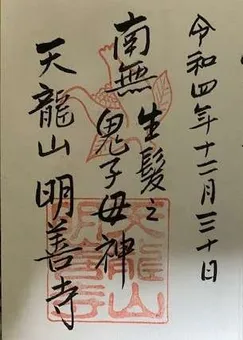 令和四年十二月三十日
南無
生髪之
鬼子母神
天龍山 明善寺
天龍山
明善寺